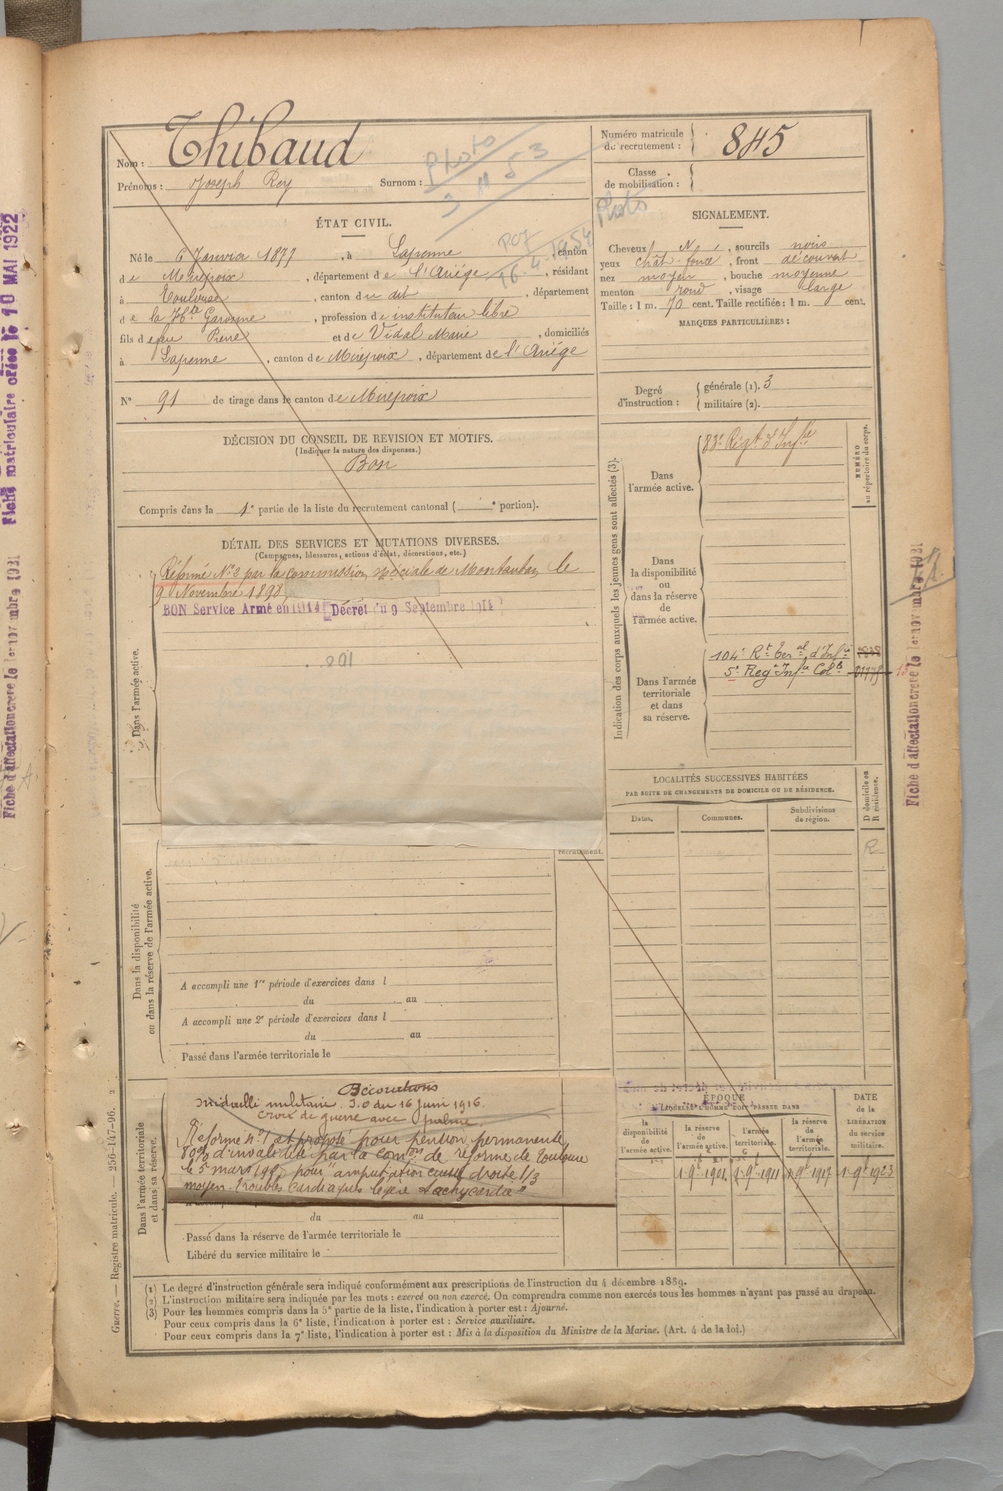 Fiche matriculaire créée le 10 MAI 1922
Fiche d'affectation créée le 1er novembre 1921
Nom : Thibaud
Prénoms : Joseph Rey Surnom :
Photo
3 11 53
Numéro matricule
du recrutement : 845
Classe
de mobilisation :
Photo
ÉTAT CIVIL.
Né le 6 Janvier 1877, à Lapenne, canton
de Mirepoix, département de l'Ariége, résidant
à Toulouse, canton du dit, département
de la Hte Garonne, profession de instituteur libre
fils de feu Pierre et de Vidal Marie, domiciliés
à Lapenne, canton de Mirepoix, département de l'Ariége
16.4.1954
SIGNALEMENT.
Cheveux N, sourcils noirs
yeux chât-foncé, front découvert
nez moyen, bouche moyenne
menton rond, visage large
Taille : 1 m. 70 cent. Taille rectifiée : 1 m. cent.
MARQUES PARTICULIÈRES :
N° 91 de tirage dans le canton de Mirepoix
Degré
d'instruction :
générale (1). 3
militaire (2).
DÉCISION DU CONSEIL DE REVISION ET MOTIFS.
(Indiquer la nature des dispenses.)
Bon
Compris dans la 1e partie de la liste du recrutement cantonal ( e portion).
DÉTAIL DES SERVICES ET MUTATIONS DIVERSES.
(Campagnes, blessures, actions d'éclat, décorations, etc.)
Réformé N°2 par la commission spéciale de Montauban le
9 Novembre 1898
BON Service Armé en 1914 Décret du 9 Septembre 1914
Dans l'armée active.
Indication des corps auxquels les jeunes gens sont affectés (3).
NUMÉRO
au répertoire du corps.
Dans
l'armée active.
83e Régt d'Infie
Dans
la disponibilité
ou
dans la réserve
de
l'armée active.
Dans l'armée
territoriale
et dans
sa réserve.
104e Rt Teral d'Infie
5e Regt Infie Colle
15
Fiche d'affectation créée le 1er novembre 1921
LOCALITÉS SUCCESSIVES HABITÉES
PAR SUITE DE CHANGEMENTS DE DOMICILE OU DE RÉSIDENCE.
Dates.
Communes.
Subdivisions
de région.
D domicile ou
R résidence.
R
recrutement.
Dans la disponibilité
ou dans la réserve de l'armée active.
A accompli une 1re période d'exercices dans l
du au
A accompli une 2e période d'exercices dans l
du au
Passé dans l'armée territoriale le
Dans l'armée territoriale
et dans sa réserve.
Décorations
Médaille militaire J.O du 16 juin 1916.
Croix de guerre avec palme
Réformé n°1 et proposé pour pension permanente
80% d'invalidité par la comon de réforme de Toulouse
le 5 mars pour "amputation cuisse droite 1/3
moyen troubles cardiaques légère tachycardie"
du au
Passé dans la réserve de l'armée territoriale le
Libéré du service militaire le
ÉPOQUE
À LAQUELLE L'HOMME DOIT PASSER DANS
la
disponibilité
de
l'armée active.
la réserve
de
l'armée active.
l'armée
territoriale.
la réserve
de
l'armée
territoriale.
DATE
de la
LIBÉRATION
du service
militaire.
1 9e 1901 1 9e 1911 1 9e 1917 1 9e 1923
(1) Le degré d'instruction générale sera indiqué conformément aux prescriptions de l'instruction du 4 décembre 1889.
(2) L'instruction militaire sera indiquée par les mots : exercé ou non exercé. On comprendra comme non exercés tous les hommes n'ayant pas passé au drapeau.
(3) Pour les hommes compris dans la 5e partie de la liste, l'indication à porter est : Ajourné.
Pour ceux compris dans la 6e liste, l'indication à porter est : Service auxiliaire.
Pour ceux compris dans la 7e liste, l'indication à porter est : Mis à la disposition du Ministre de la Marine. (Art. 4 de la loi.)
Guerre. — Registre matricule. — 256-147-96. 2